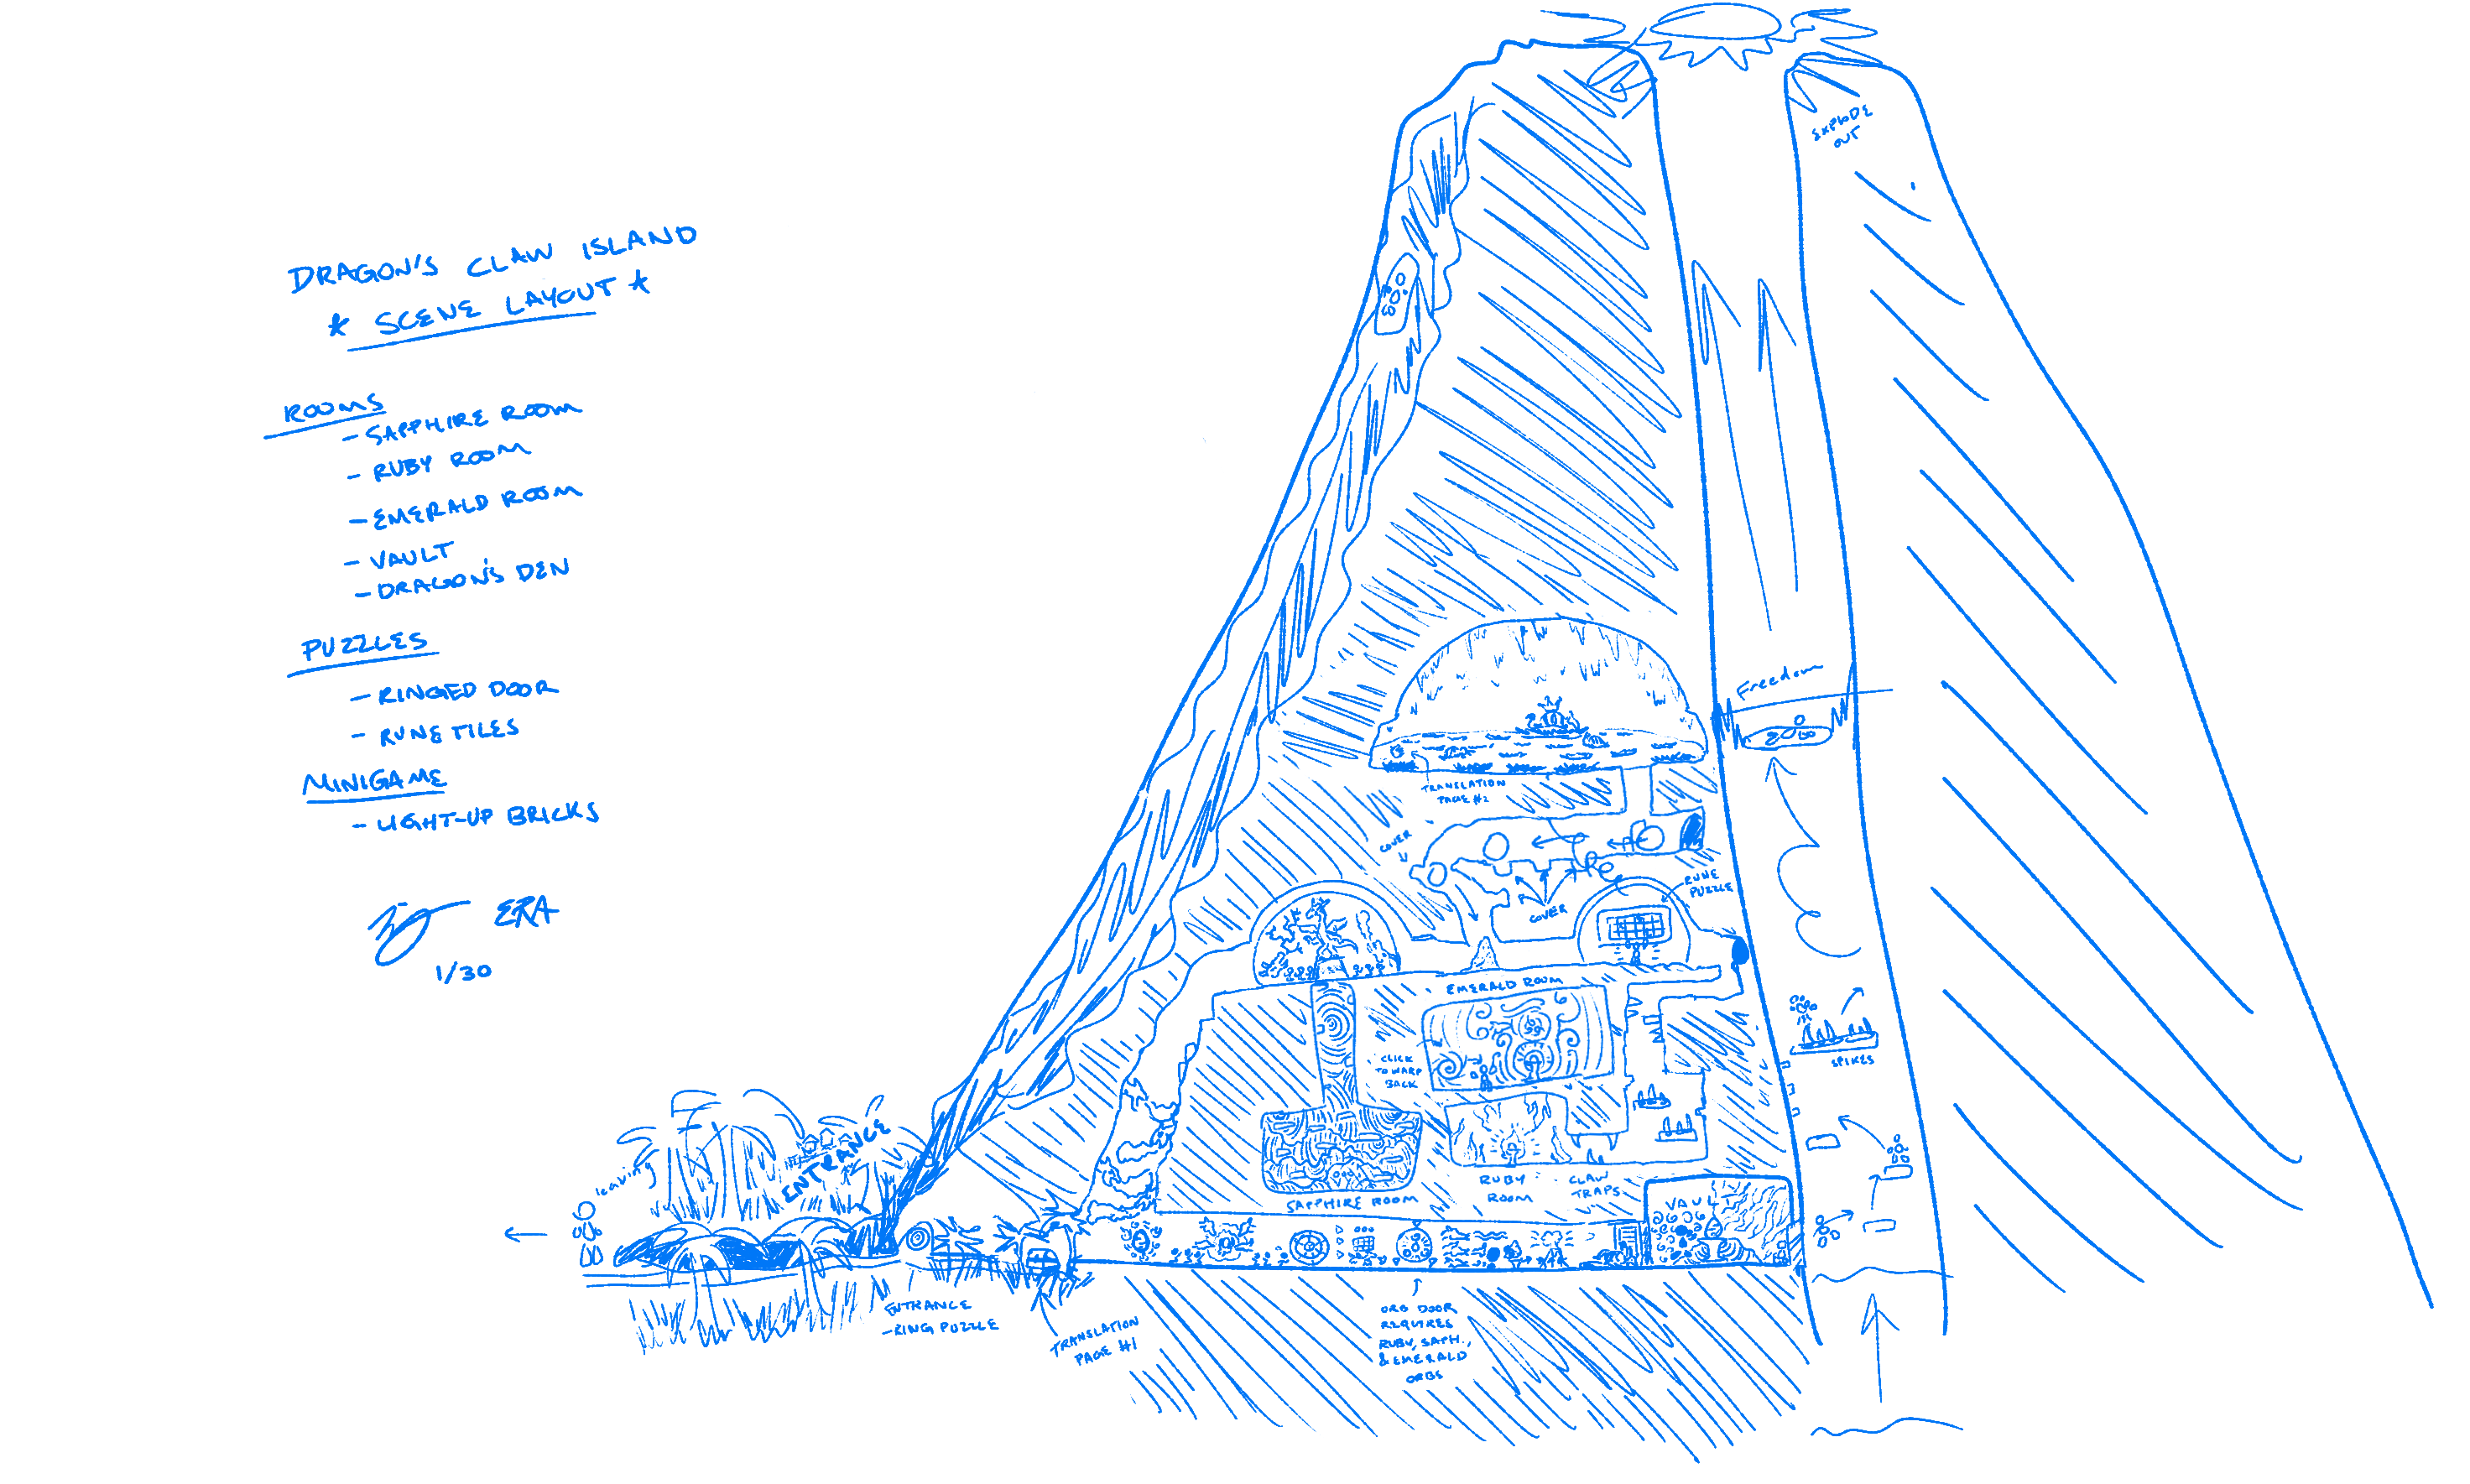 DRAGON'S CLAW ISLAND
* SCENE LAYOUT *
ROOMS
- SAPPHIRE ROOM
- RUBY ROOM
- EMERALD ROOM
- VAULT
- DRAGON'S DEN
PUZZLES
- RINGED DOOR
- RUNE TILES
MINIGAME
- LIGHT-UP BRICKS
ERA
1/30
EXPLODE
OUT
Freedom
TRANSLATION
PAGE #2
COVER
COVER
RUNE
PUZZLE
EMERALD ROOM
CLICK
TO WARP
BACK
SPIKES
SAPPHIRE ROOM
RUBY
ROOM
CLAW
TRAPS
VAULT
leaving
ENTRANCE
ENTRANCE
- RING PUZZLE
TRANSLATION
PAGE #1
ORB DOOR
REQUIRES
RUBY, SAPH.,
& EMERALD
ORBS